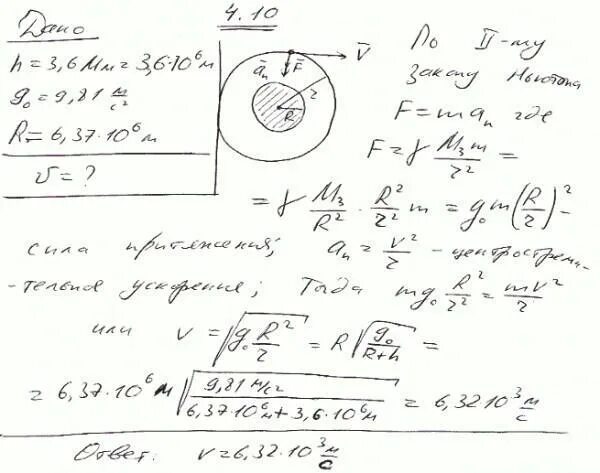 4.10
Дано
h = 3,6 Мм = 3,6·10⁶ м
g₀ = 9,81 м/с²
R = 6,37·10⁶ м
v = ?
V
F
aₙ
r
R
По II-му
закону Ньютона
F = maₙ где
F = γ M₃m/r² =
= γ M₃/R² · R²/r² m = g₀m(R/r)² -
сила притяжения; aₙ = v²/r - центростреми-
-тельное ускорение; Тогда mg₀ R²/r² = mv²/r
или v = √(g₀ R²/r) = R√(g₀/(R+h)) =
= 6,37·10⁶ м √(9,81 м/с² / (6,37·10⁶ м + 3,6·10⁶ м)) = 6,32 10³ м/с
Ответ: v = 6,32·10³ м/с